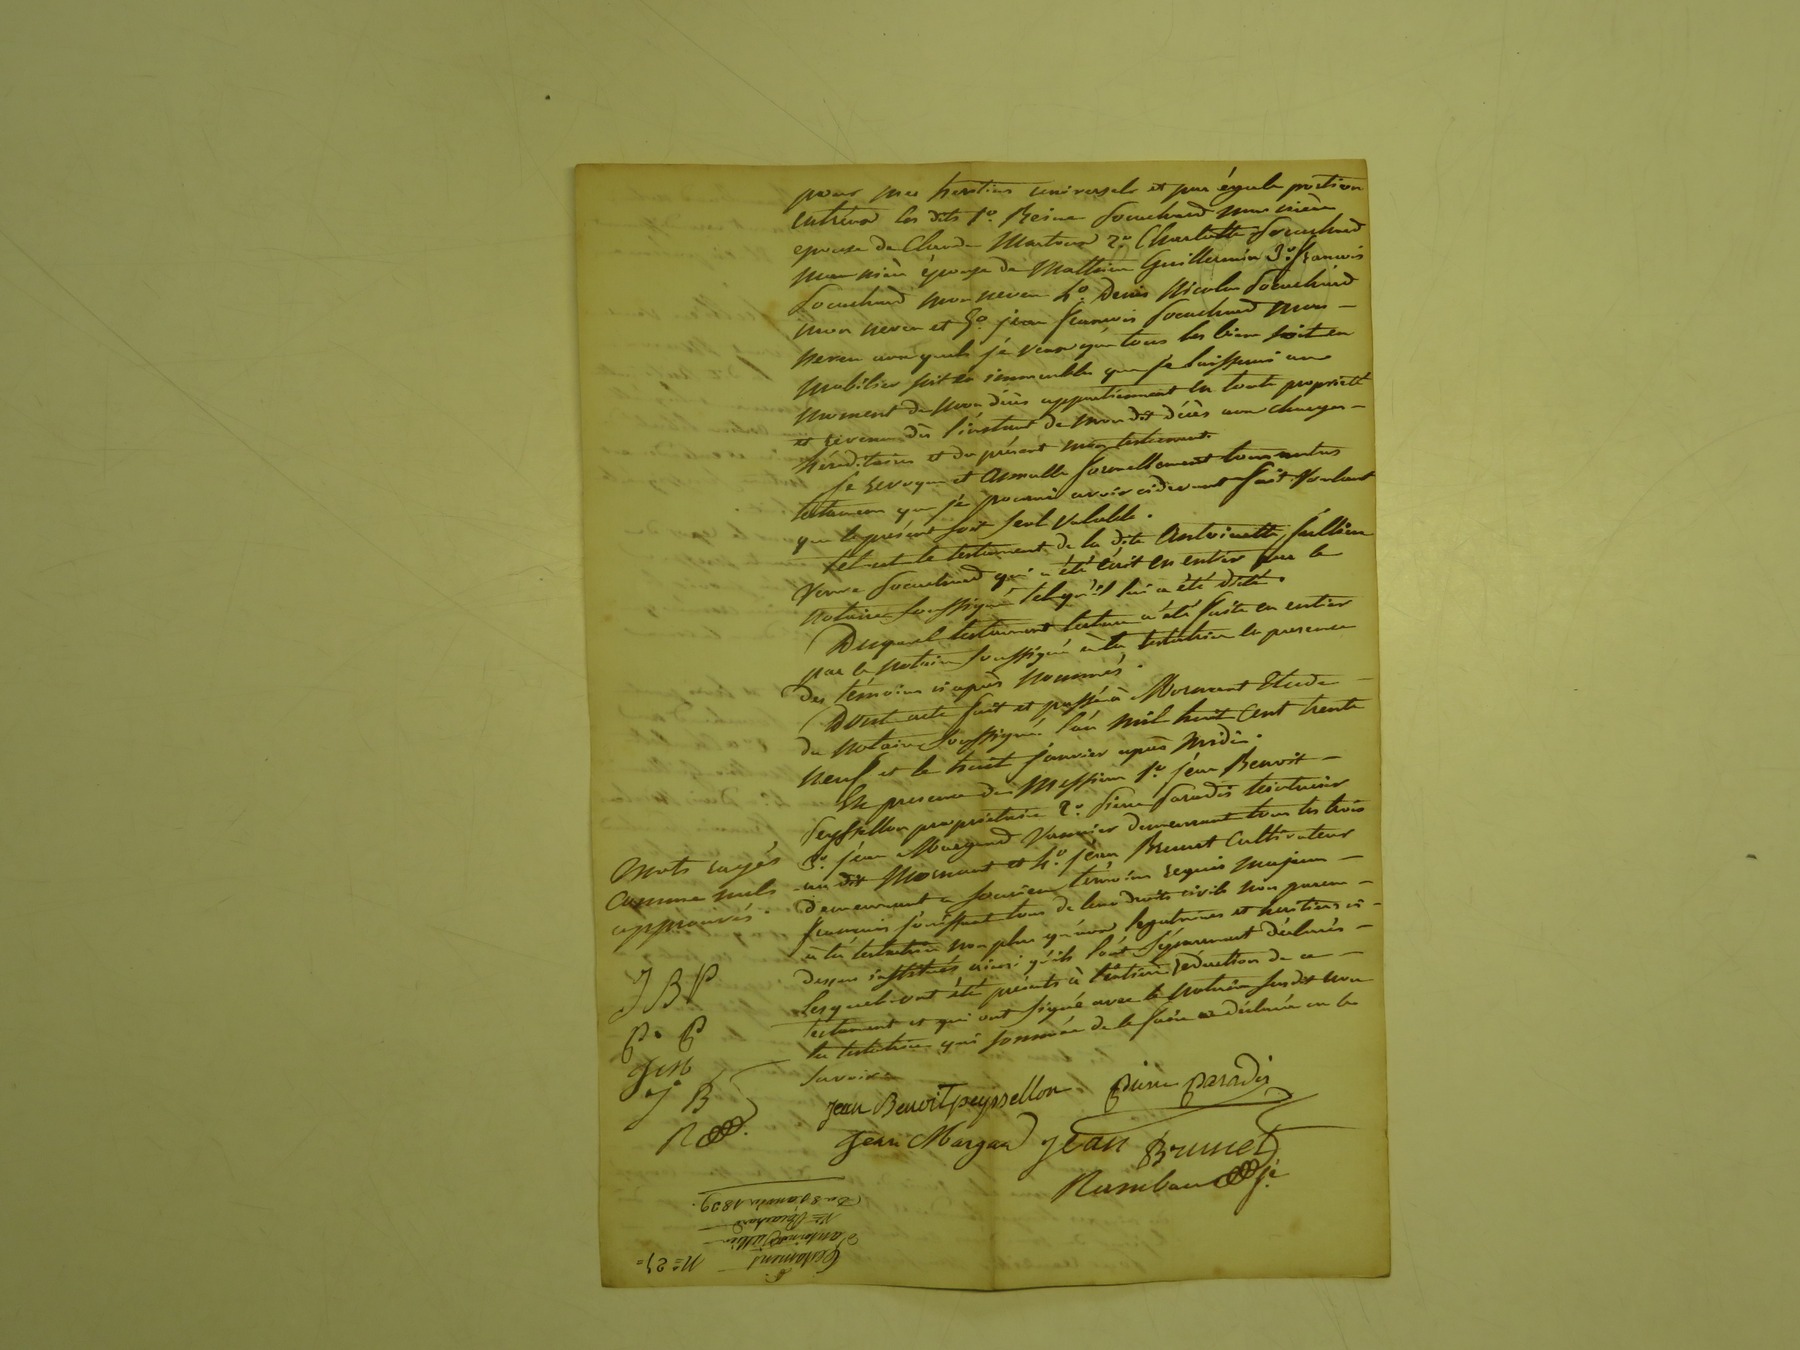 pour mes heritiers universels et par égale portion
entr'eux les dits 1.o Reine Souchard ma nièce
epouse de Claude 2.o Charlotte Souchard
ma nièce épouse de Mathieu Guillermin 3.o francois
Souchard mon neveu 4.o Denis Nicolas Souchard
mon neveu et 5.o jean francois Souchard mon
neveu auxquels je veux que tous les biens soit en
mobilier soit en immeubles que je laisserai au
moment de mon décès appartiennent en toute propriété
et revenu dès l'instant de mon dit décès aux charges
héréditaires et du présent mon testament.
je revoque et annulle formellement tous autres
testamens que je pourrais avoir cidevant fait Voulant
que le présent soit seul valable.
tel est le testament de la dite Antoinette jullien
Veuve Souchard qui a été écrit en entier par le
notaire soussigné tel qu'il lui a été dicté.
Duquel testament lecture a été faite en entier
par le notaire soussigné à la testatrice en presence
des témoins ci après nommés.
Dont acte fait et passé à Mornant Etude
du notaire soussigné l'an mil huit cent trente
neuf et le huit janvier après midi.
En presence de Messieurs 1.o jean Benoit
Peyssellon propriétaire 2.o pierre paradis teinturier
3.o jean Margand Vannier demeurant tous les trois
au dit Mornant et 4.o jean Brunet Cultivateur
demeurant a Soucieu témoins requis majeurs
francais jouissant tous de leurs droits civils non parens
à la testatrice non plus qu'aux legataires et heritiers ci
dessus institués ainsi qu'ils l'ont séparement déclarés
Lesquels ont été présents à l'entière rédaction de ce
testament et qui ont signé avec le notaire susdit non
la testatrice qui sommée de le faire a déclaré ne le
savoir
Mots rayés
comme nuls
approuvés.
J B P
P. P
J M
J B
R
Jean Benoit peyssellon Pierre Paradis
Jean Margand Jean Brunet
Rambaud
N.o 27
Testament
d'antoinette Jullien
V.e Souchard
Du 8 Janvier 1839.